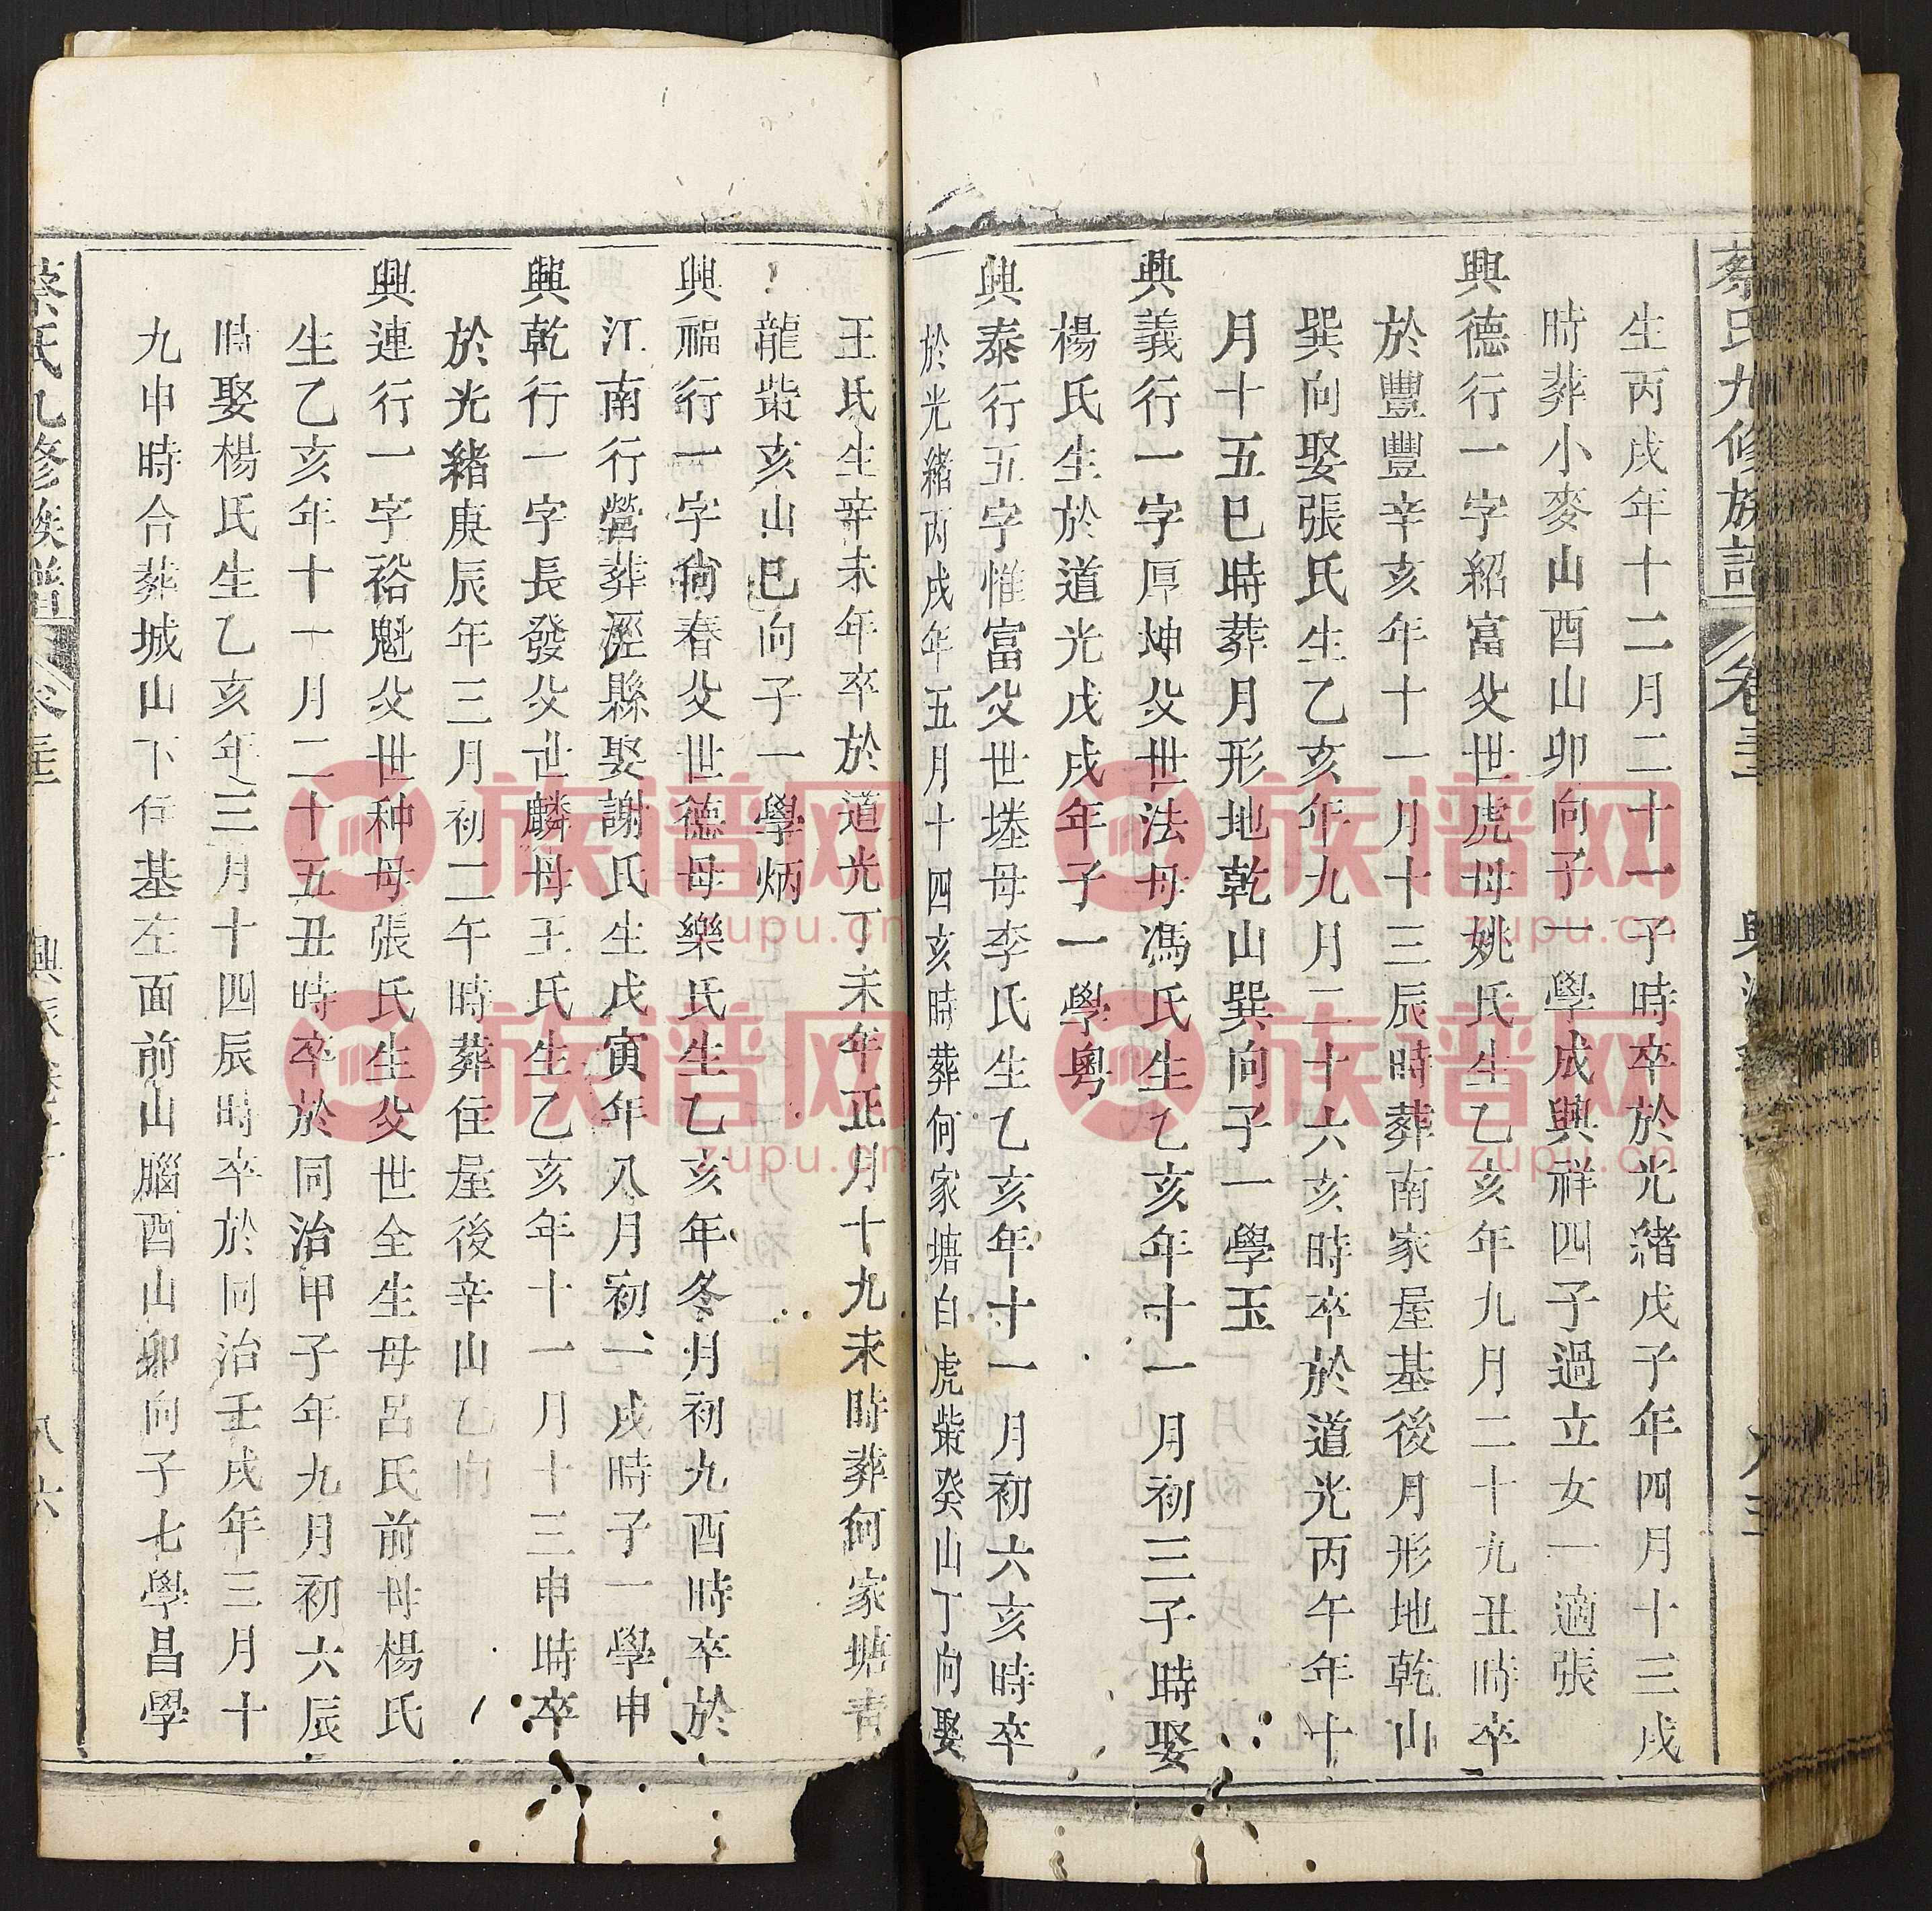 蔡氏九修族譜 卷三
生丙戌年十二月二十一子時卒於光緒戊子年四月十三戌
時葬小麥山酉山卯向子一學成興祥四子過立女一適張
興德行一字紹富父世虎母姚氏生乙亥年九月二十九丑時卒
於豐豐辛亥年十一月十三辰時葬南家屋基後月形地乾山
巽向娶張氏生乙亥年九月二十六亥時卒於道光丙午年十
月十五巳時葬月形地乾山巽向子一學玉
興義行一字厚坤父世法母馮氏生乙亥年十一月初三子時娶
楊氏生於道光戊戌年子一學粵
興泰行五字惟富父世堘母李氏生乙亥年十一月初六亥時卒
於光緒丙戌年五月十四亥時葬何家塘白虎棠癸山丁向娶
王氏生辛未年卒於道光丁未年正月十九未時葬何家塘青
龍棠亥山巳向子一學炳
興福行一字尙春父世德母樂氏生乙亥年冬月初九酉時卒於
江南行營葬涇縣娶謝氏生戊寅年八月初一戌時子一學申
興乾行一字長發父世麟母王氏生乙亥年十一月十三申時卒
於光緒庚辰年三月初二午時葬住屋後辛山乙向
興連行一字裕魁父世种母張氏生父世全生母呂氏前母楊氏
生乙亥年十一月二十五丑時卒於同治甲子年九月初六辰
時娶楊氏生乙亥年三月十四辰時卒於同治壬戌年三月十
九申時合葬城山下仔基左面前山腦酉山卯向子七學昌學
蔡氏九修族譜 卷三 八六
族谱网
zupu.cn
族谱网
zupu.cn
族谱网
zupu.cn
族谱网
zupu.cn